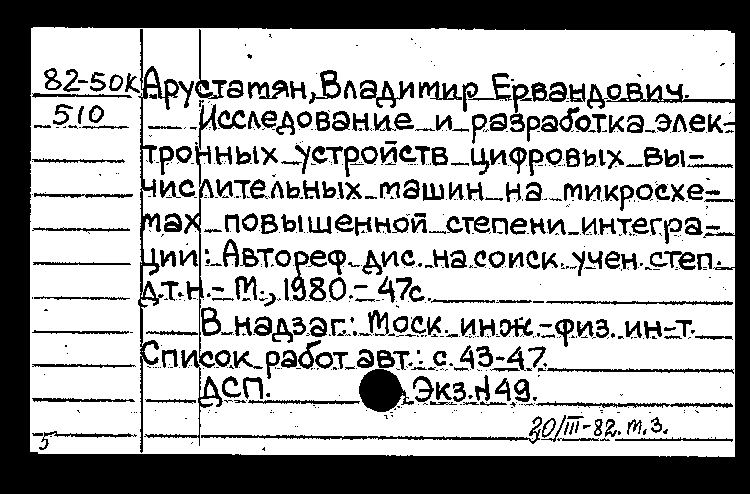 82-50к Арустамян, Владимир Ервандович.
510 Исследование и разработка элек-
тронных устройств цифровых вы-
числительных машин на микросхе-
мах повышенной степени интегра-
ции: Автореф. дис. на соиск. учен. степ.
д.т.н. - М., 1980. - 47с.
В надзаг.: Моск. инж.-физ. ин-т.
Список работ авт.: с. 43-47.
ДСП. Экз. N49.
20/III-82. т. 3.
5